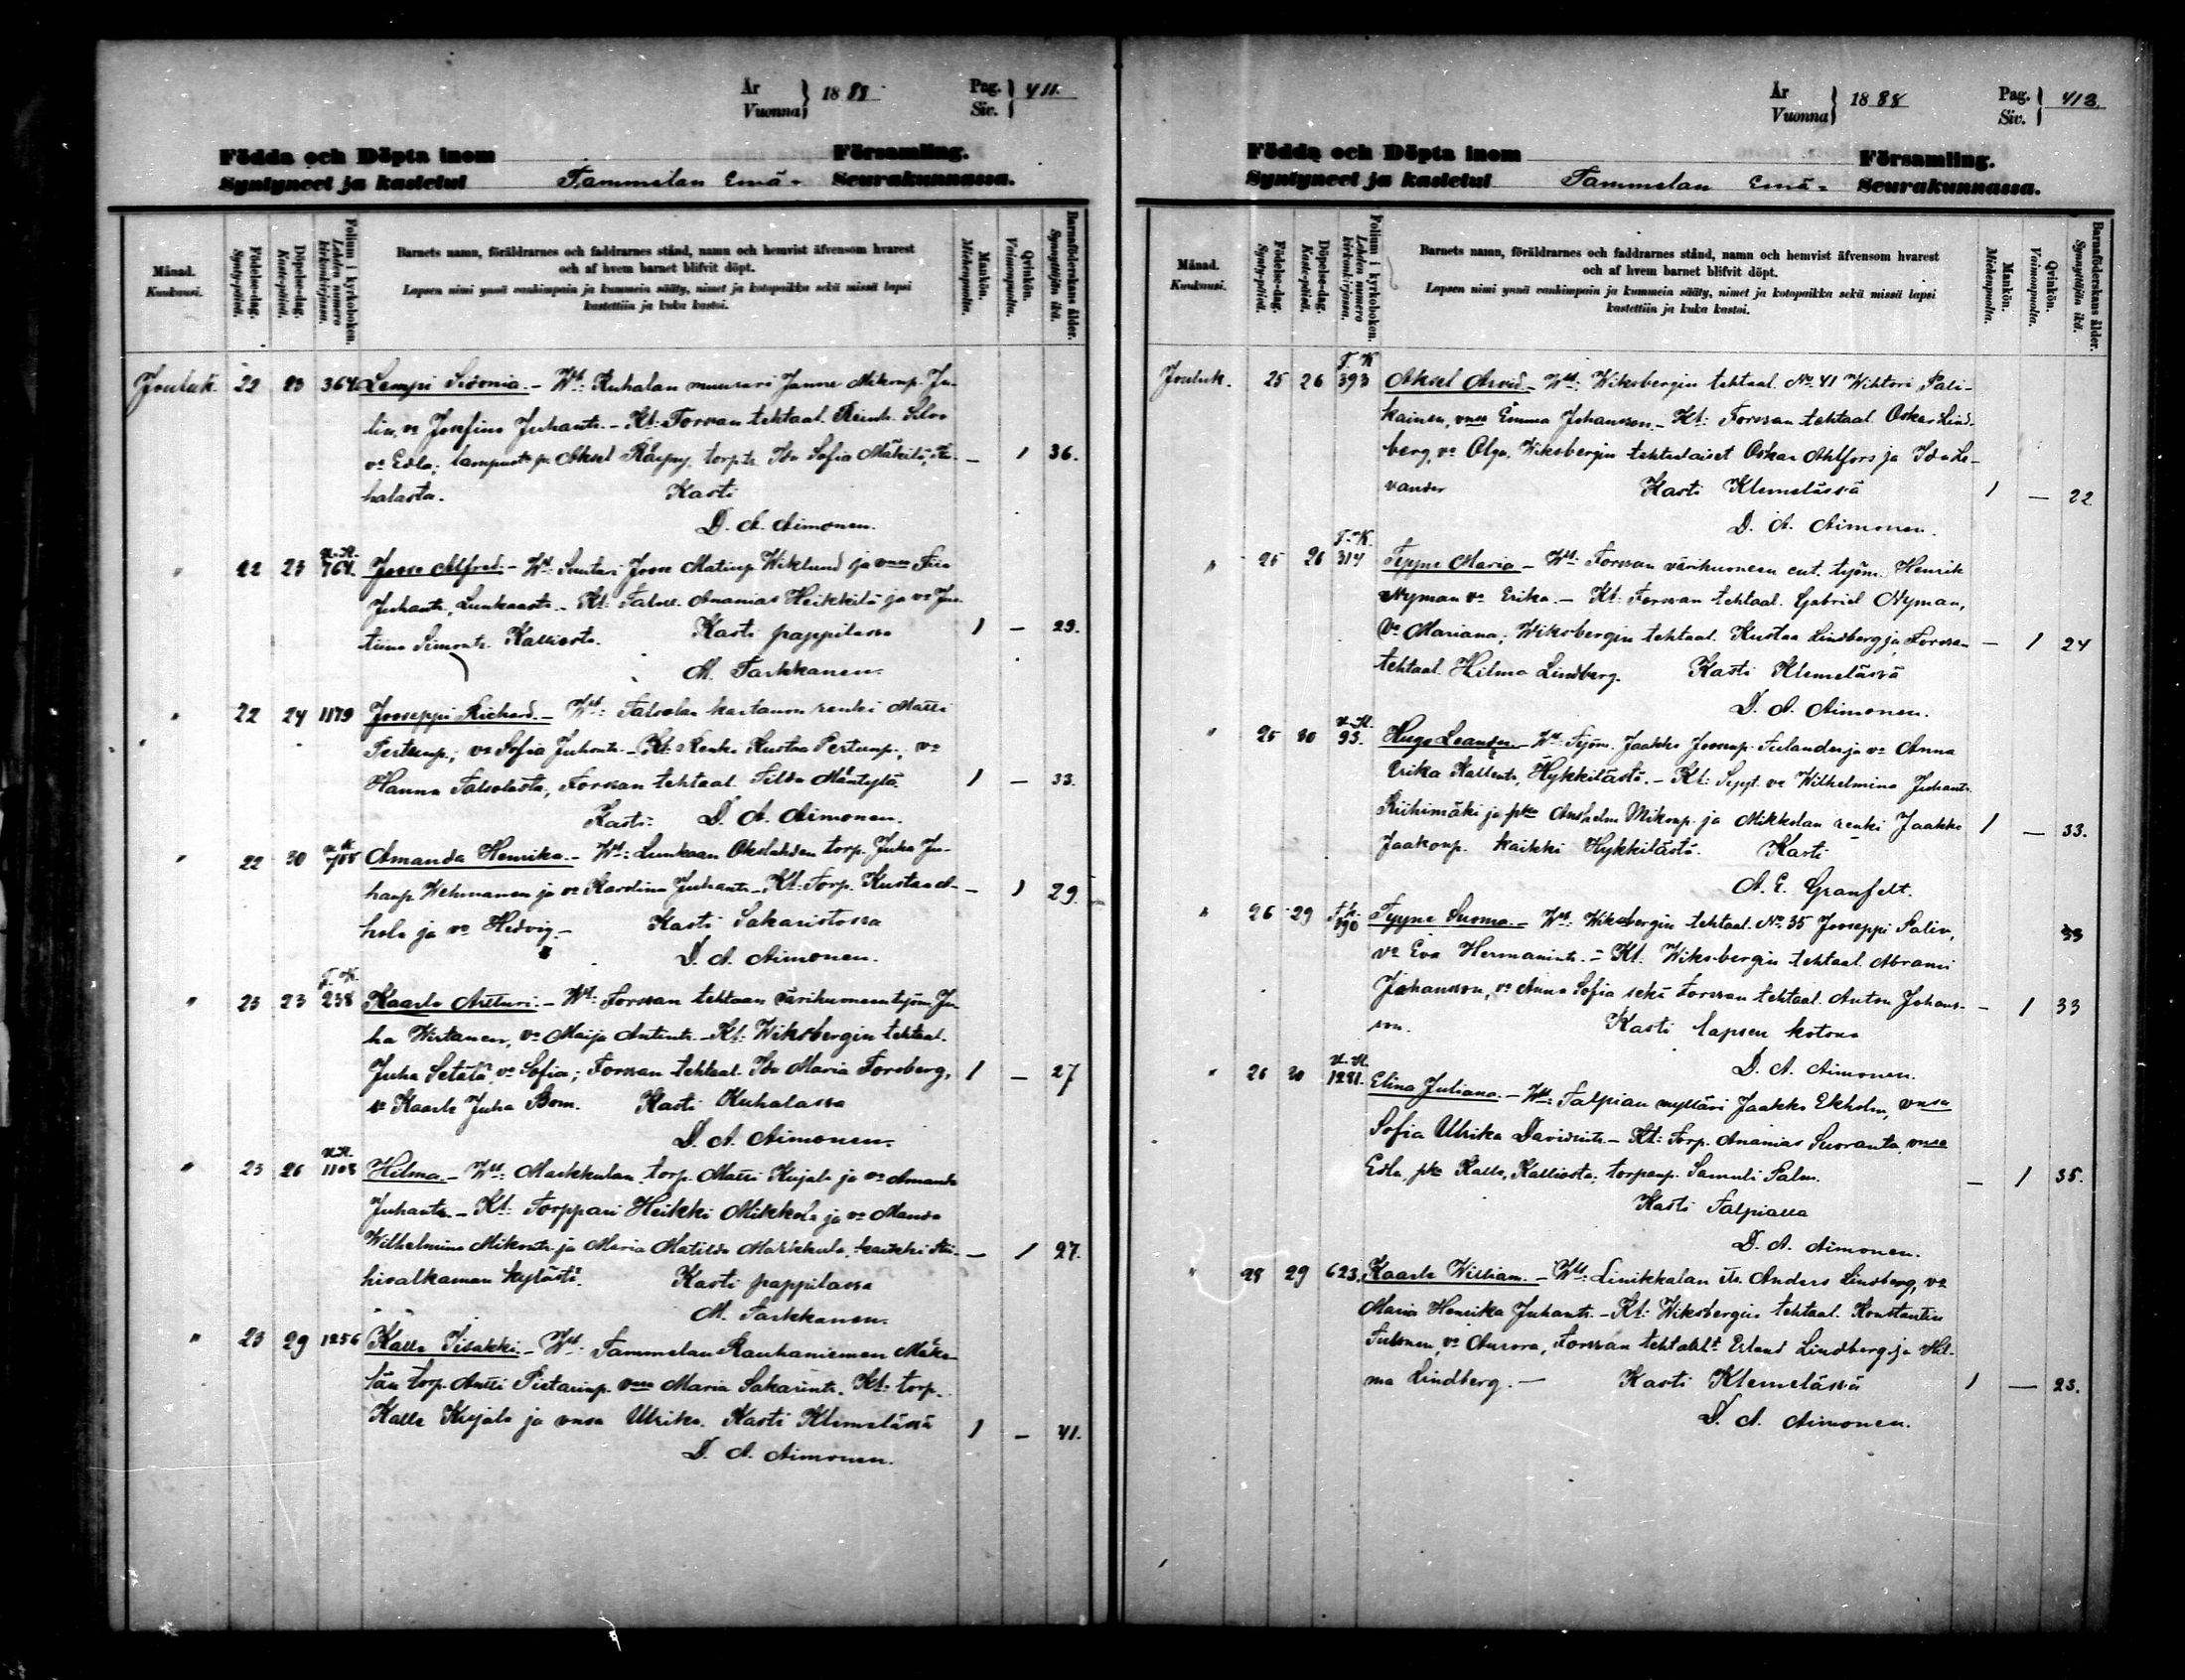 År Vuonna } 1888 Pag. Siv. } 411.
Födda och Döpta inom Församling.
Syntyneet ja kastetut Tammelan Emä- Seurakunnassa.
Månad. Kuukausi.
Födelse-dag. Synty-päivä.
Döpelse-dag. Kaste-päivä.
Folium i kyrkoboken. Lehden numero kirkonkirjassa.
Barnets namn, föräldrarnes och faddrarnes stånd, namn och hemvist äfvensom hvarest
och af hvem barnet blifvit döpt.
Lapsen nimi ynnä vanhimpain ja kummein sääty, nimet ja kotopaikka sekä missä lapsi
kastettiin ja kuka kastoi.
Mankön. Miehenpuolta.
Qvinkön. Vaimonpuolta.
Barnaföderskans ålder. Synnyttäjän ikä.
Jouluk. 22 23 364 Lempi Sidonia. - Wt: Kuhalan muurari Janne Mikonp. Ju-
lin, vo Josefina Juhantr. - Kt: Forssan tehtaal. Reinh.
vo Edla; ja Aksel torp.tr. Ida Sofia Mäkilä, Ku- — 1 36.
halasta. Kasti
D. A. Aimonen.
" 22 23 U.K. 764. Josse Alfred. - Wt: Suutari Josse Matinp. Wiklund ja vmo Fiia
Juhantr., Lunkaasta. - Kt: Ananias Heikkilä ja vo Jus-
tiina Simontr. Kalliosta. Kasti pappilassa 1 — 29.
M. Tarkkanen.
" 22 24 1179 Jooseppi Richard. - Wt: Talsolan kartanon renki Matti
Pertunp., vo Sofia Juhontr. - Kt: Renki Kustaa Pertunp., vo
Hanna Talsolasta, Forssan tehtaal. Tilda Mäntylä. 1 — 33.
Kasti: D. A. Aimonen.
" 22 30 U.K. 705 Amanda Henrika. - Wt: Lunkaan Okslahden torp. Juha Ju-
hanp. Wehmanen ja vo Karolina Juhantr. - Kt: Torp. Kustaa A- — 1 29.
hola ja vo Hedvig. - Kasti Sakaristossa
D. A. Aimonen.
" 23 23 T.K. 238 Kaarlo Artturi. - Wt: Forssan tehtaan värihuoneen työm. Ju-
ha Wirtanen, vo Maija Antintr. - Kt: Wiksbergin tehtaal.
Juha Setälä, vo Sofia; Forssan tehtaal. Ida Maria Forsberg, 1 — 27
Kaarle Juha Bom. Kasti Kuhalassa
D. A. Aimonen.
" 23 26 U.K. 1108 Hilma. - Wt: Markkulan torp. Matti Kujala ja vo Amanda
Juhantr. - Kt: Torppari Heikki Mikkola ja vo Manda
Wilhelmina Mikontr. ja Maria Matilda Markkula, kaikki — 1 27.
kylästä. Kasti pappilassa
M. Tarkkanen.
" 23 29 1256 Kalle Iisakki. - Wt: Tammelan Rauhaniemen Mäke-
län torp. Antti Pietarinp. vmo Maria Sakarintr. Kt: torp.
Kalle Kujala ja vmsa Ulrika. Kasti Klemelässä 1 — 41.
D. A. Aimonen.
År Vuonna } 1888 Pag. Siv. } 412.
Födda och Döpta inom Församling.
Syntyneet ja kastetut Tammelan Emä- Seurakunnassa.
Månad. Kuukausi.
Födelse-dag. Synty-päivä.
Döpelse-dag. Kaste-päivä.
Folium i kyrkoboken. Lehden numero kirkonkirjassa.
Barnets namn, föräldrarnes och faddrarnes stånd, namn och hemvist äfvensom hvarest
och af hvem barnet blifvit döpt.
Lapsen nimi ynnä vanhimpain ja kummein sääty, nimet ja kotopaikka sekä missä lapsi
kastettiin ja kuka kastoi.
Mankön. Miehenpuolta.
Qvinkön. Vaimonpuolta.
Barnaföderskans ålder. Synnyttäjän ikä.
Jouluk. 25 26 T.K. 393 Aksel Arvid. - Wt: Wiksbergin tehtaal. No 41 Wihtori Pali-
kainen, vmsa Emma Johansson. - Kt: Forssan tehtaal. Oskar Lind-
berg, vo Olga, Wiksbergin tehtaalaiset Oskar Ahlfors ja Ida Le-
vander Kasti Klemelässä 1 — 22
D. A. Aimonen.
" 25 26 T.K. 314 Tyyne Maria - Wt: Forssan värihuoneen ent. työm. Henrik
Nyman vo Erika. - Kt: Forssan tehtaal. Gabriel Nyman,
vo Mariana; Wiksbergin tehtaal. Kustaa Lindberg ja Forssan — 1 24
tehtaal. Hilma Lindberg. Kasti Klemelässä
D. A. Aimonen.
" 25 30 U.K. 93. Hugo Leander. - Wt: Työm. Jaakko Joosenp. Tulander ja vo Anna
Erika Kallentr., Hykkilästä. - Kt: Sept. vo Wilhelmina Juhantr.
Riihimäki ja pka Anshelm Mikonp. ja Mikkolan renki Jaakko 1 — 33.
Jaakonp. kaikki Hykkilästä. Kasti
A. E. Granfelt.
" 26 29 T.K. 190 Tyyne Susma. - Wt: Wiksbergin tehtaal. No 35 Jooseppi Salin, 33
vo Eva Hermanintr. - Kt. Wiksbergin tehtaal. Abrami
Johansson, vo Anna Sofia sekä Forssan tehtaal. Anton Johans- — 1 33
son. Kasti lapsen kotona
D. A. Aimonen.
" 26 30 U.K. 1281. Elina Juliana. - Wt: Talpian mylläri Jaakko Ekholm, vmsa
Sofia Ulrika Davidintr. - Kt: Torp. Ananias Suoranta, vmsa
Edla, pka Kalle, Kalliosta; torpanp. Samuli Palm. — 1 35.
Kasti Talpialla
D. A. Aimonen.
" 28 29 623. Kaarle William. - Wt: Linikkalan itr. Anders Lindberg, vo
Maria Henrika Juhantr. - Kt: Wiksbergin tehtaal. Konstantin
vo Aurora, Forssan tehtaal. Erland Lindberg ja Hil-
ma Lindberg. — Kasti Klemelässä 1 — 23.
D. A. Aimonen.